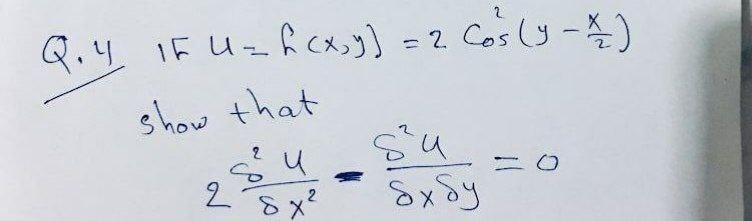 Q.4 IF U = f(x,y) = 2 Cos²(y - x/2)
show that
2 δ²u/δx² - δ²u/δxδy = 0